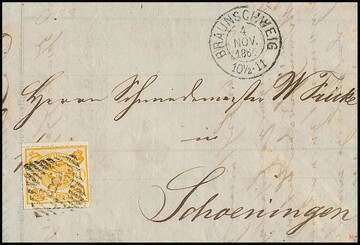 BRAUNSCHWEIG
4
NOV.
10½-11
Herrn Schmiedemeister W. Fricke
in
Schoeningen